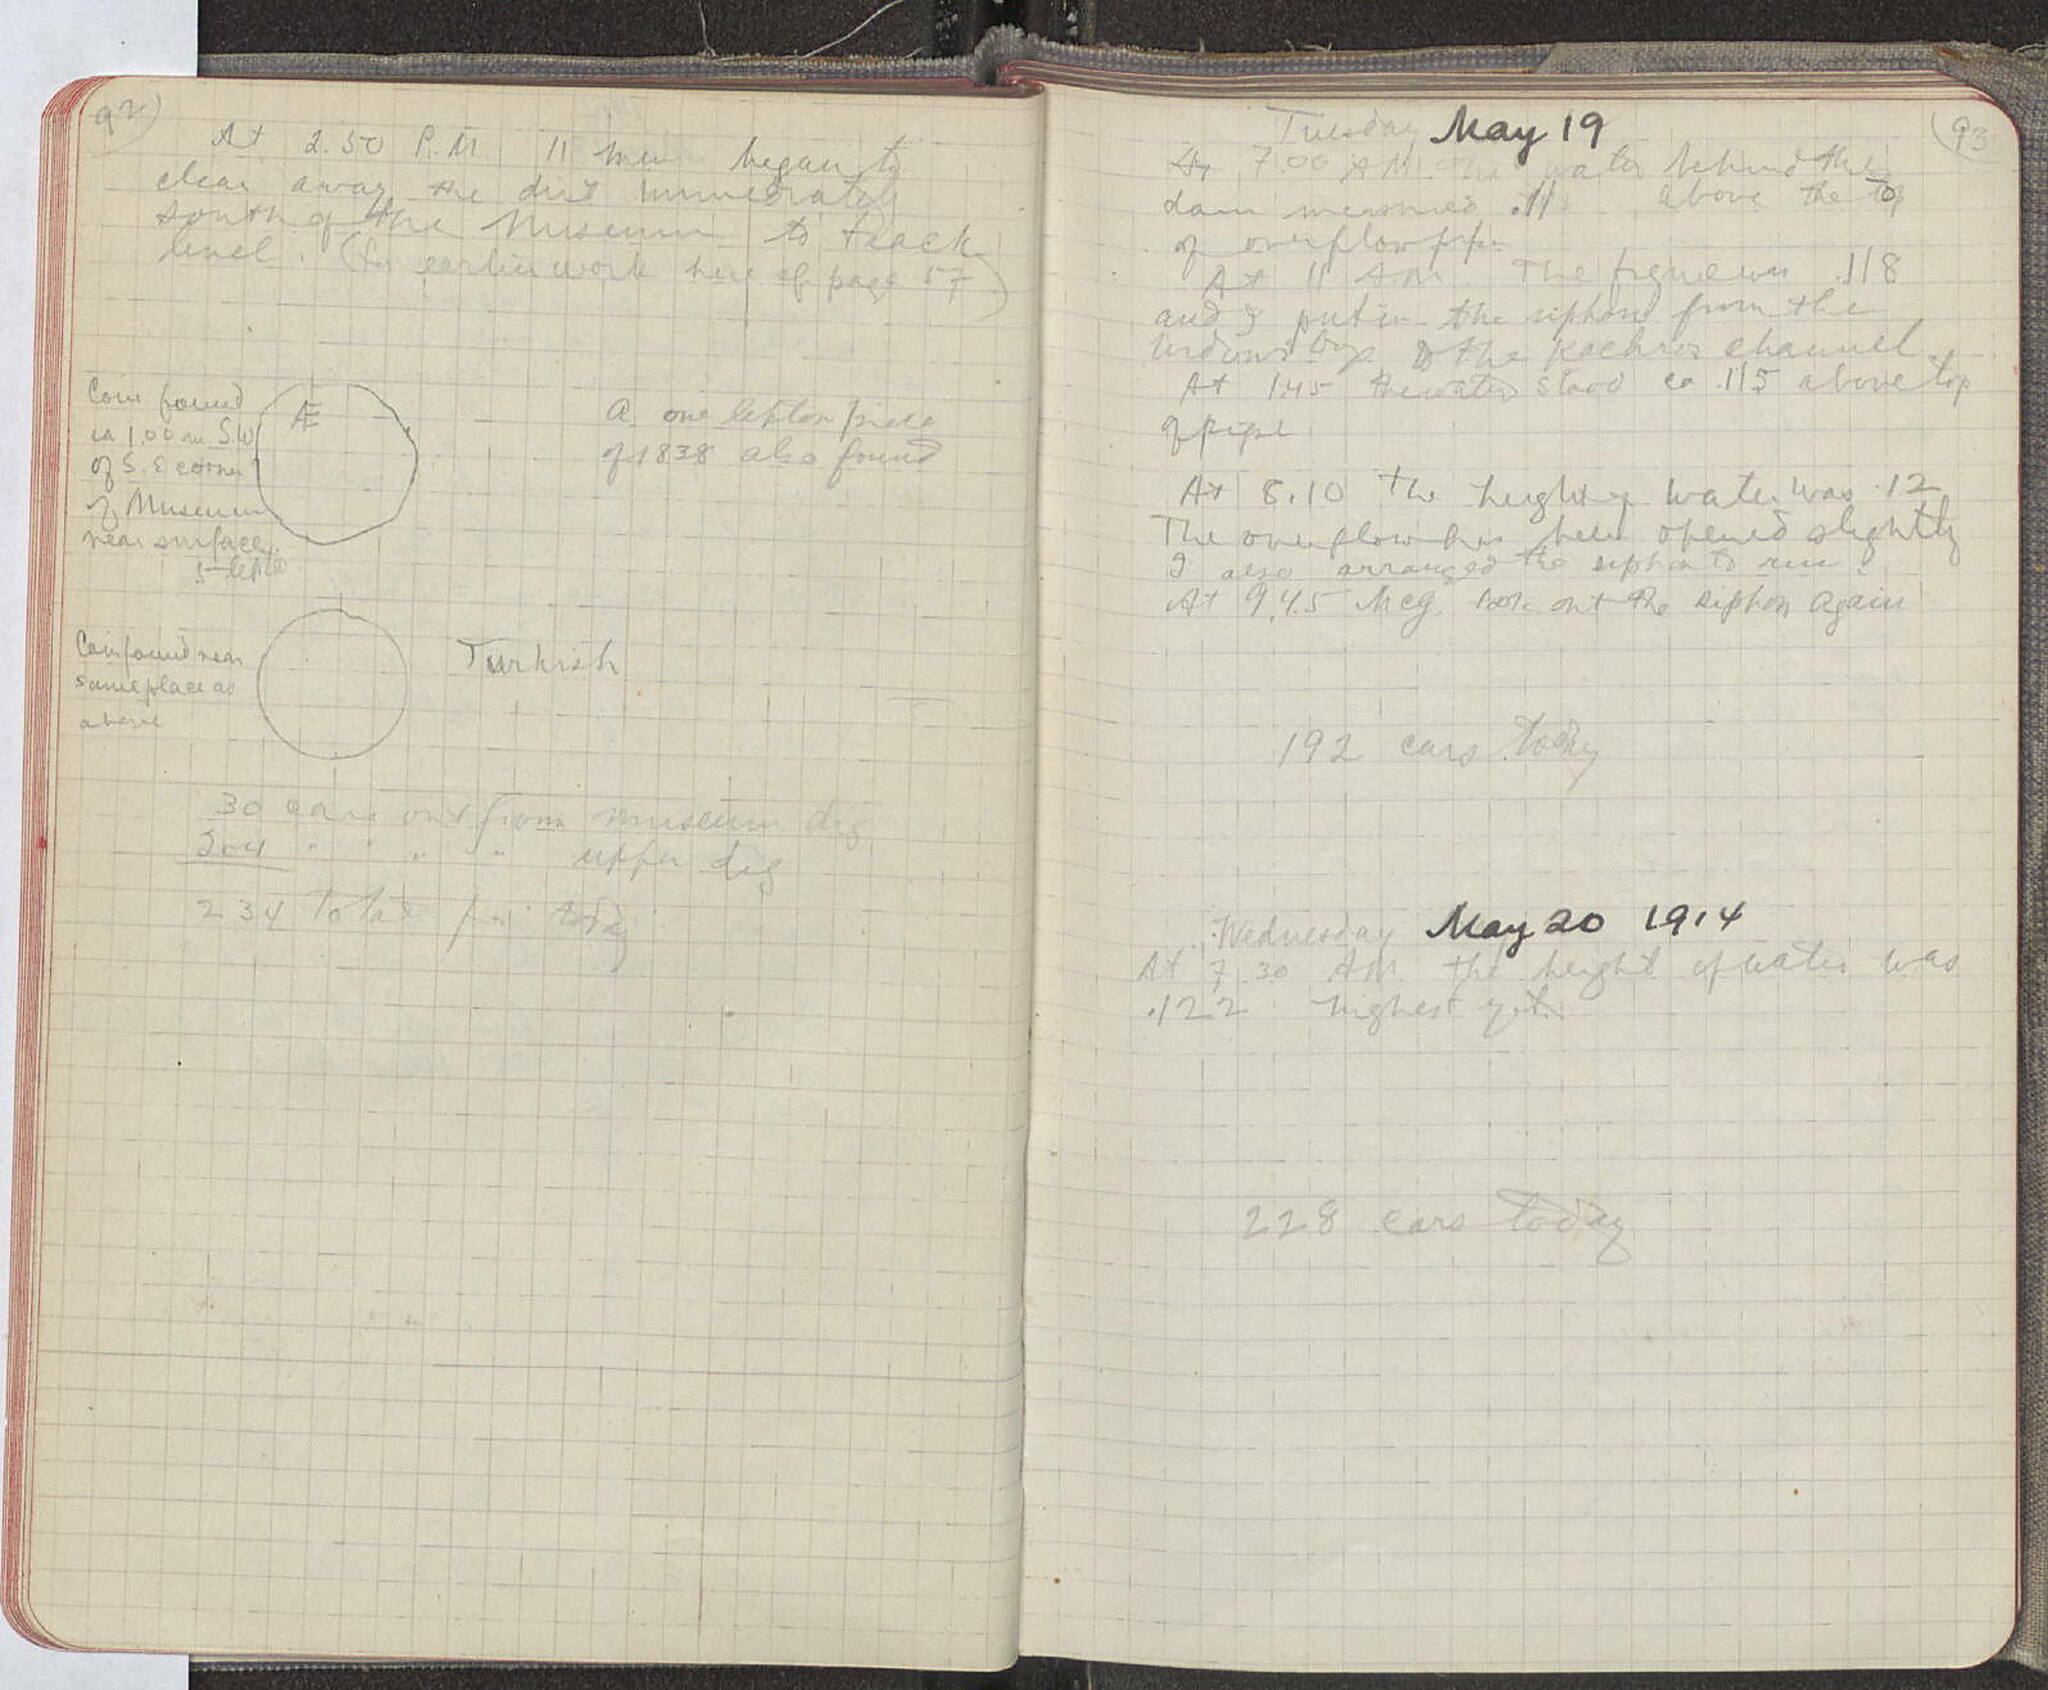 92
At 2.50 P.M 11 men began to
clear away the dirt immediately
south of the Museum to track
level. (for earlier work here cf page 57)
Coin found
ca 1.00 m S.W
of S.E corner
of Museum
near surface.
5 lepta
Æ
A one lepton piece
of 1838 also found
Coin found near
same place as
above
Turkish
30 cars out from museum dig
204 " " " " upper dig
234 total for today
93
Tuesday May 19
At 7.00 A.M. the water behind the
dam measured .11 above the top
of overflow pipe
At 11 A.M. The figure was .118
and I put in the siphon from the
to the channel.
At 1.45 the water stood ca .115 above top
of pipe
At 8.10 the height of water was .12
The overflow has been opened slightly
I also arranged the siphon to run.
At 9.45 McG. took out the siphon again
192 cars today
Wednesday May 20 1914
At 7.30 AM the height of water was
.122 highest yet.
228 cars today